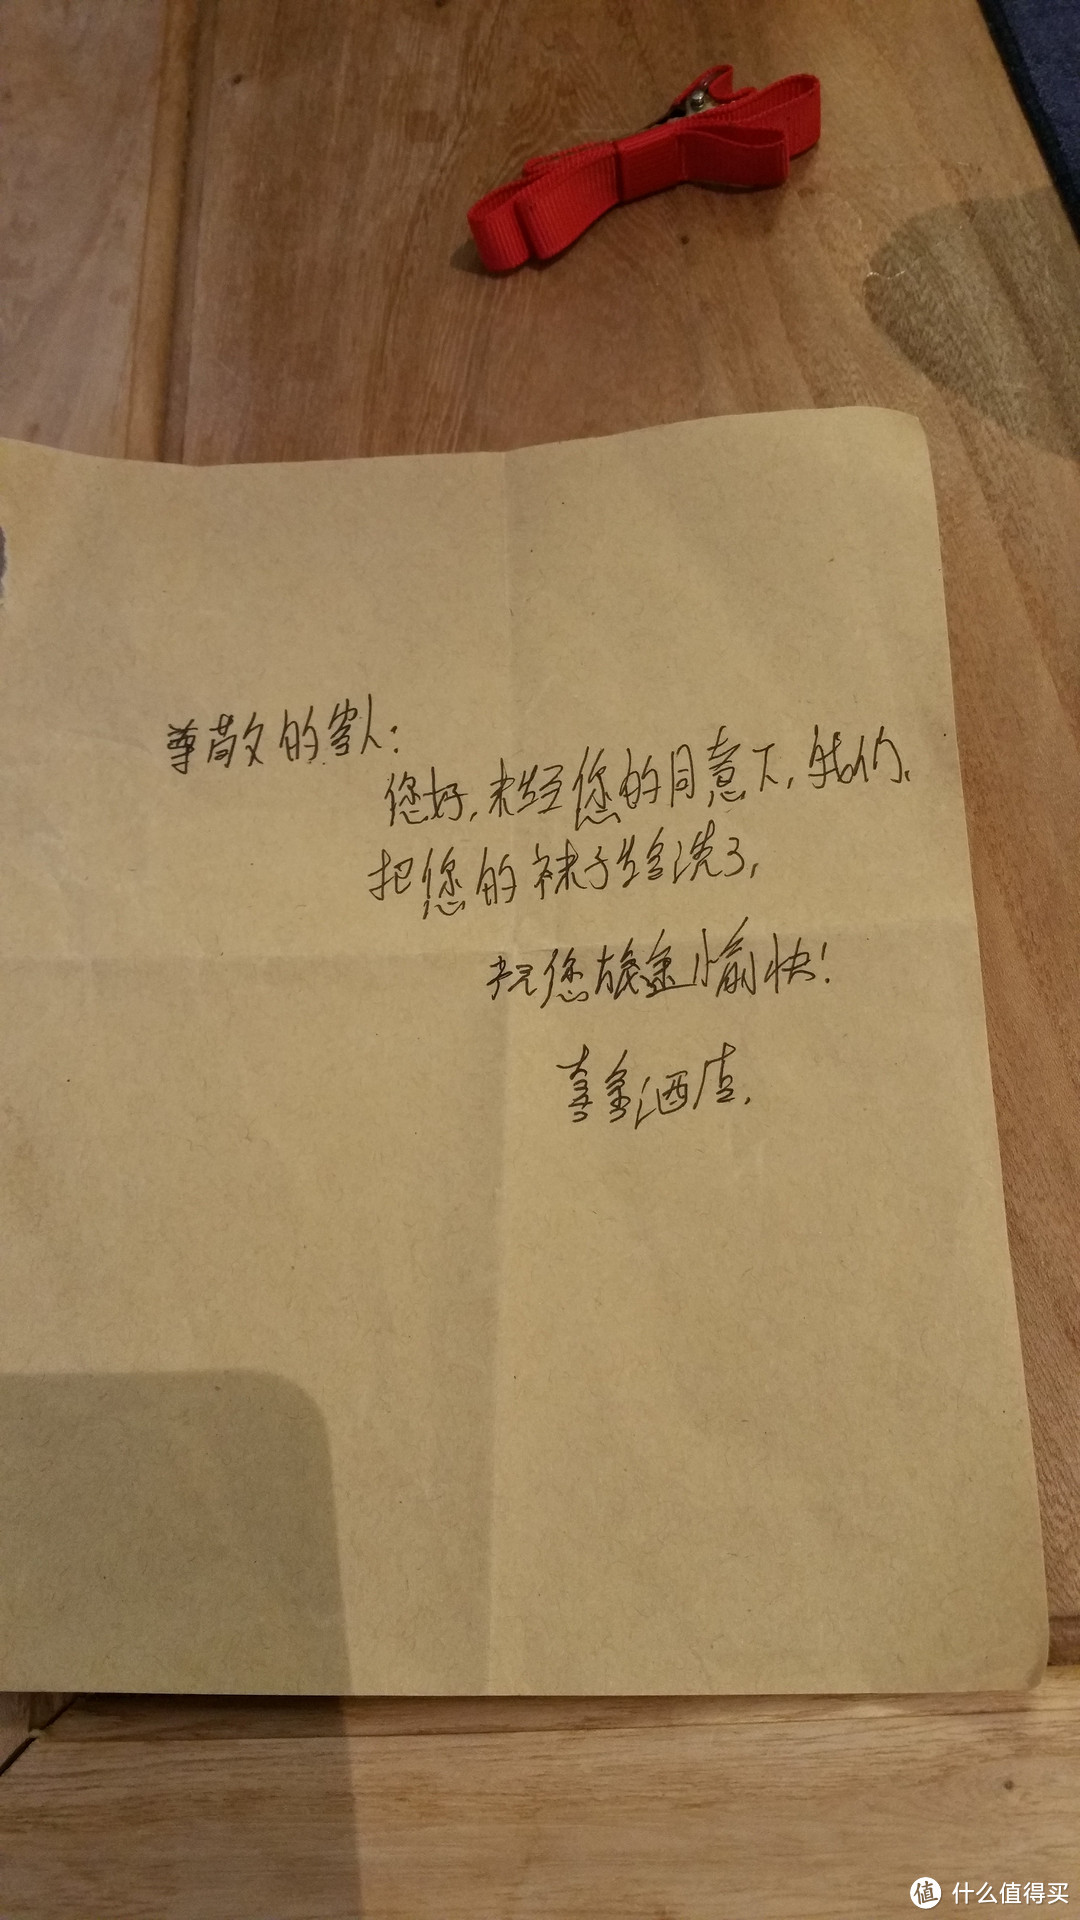 尊敬的客人:
您好,未经您的同意下,我们、
把您的袜子给洗了,
祝您旅途愉快!
喜金酒店.
值 什么值得买